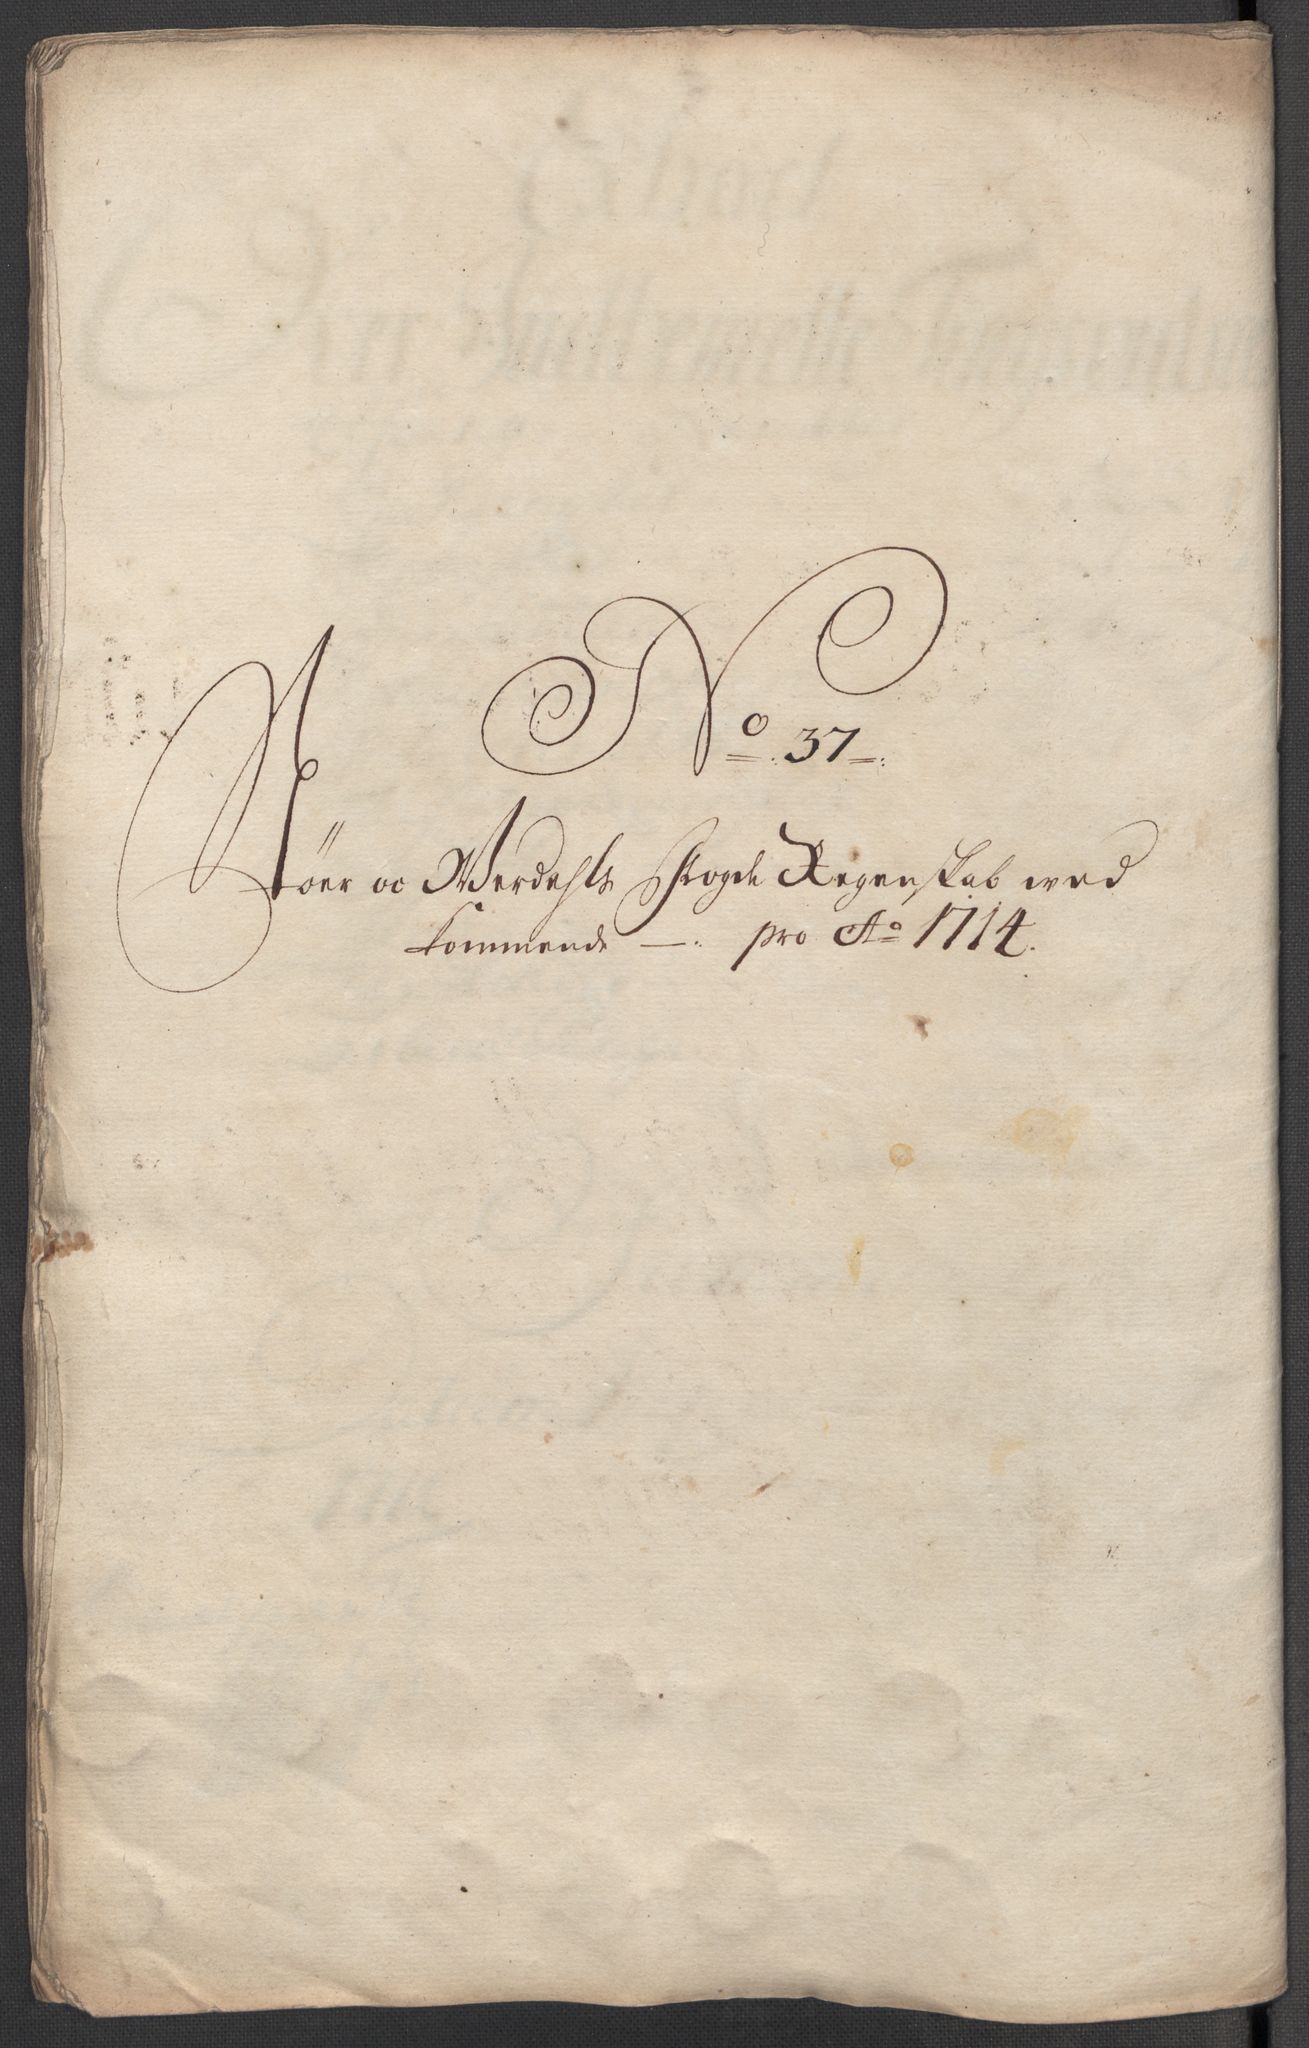 No. 37.
Støer oc Werdahls Fogde Regenskab wed
kommende — pro Ao 1714.